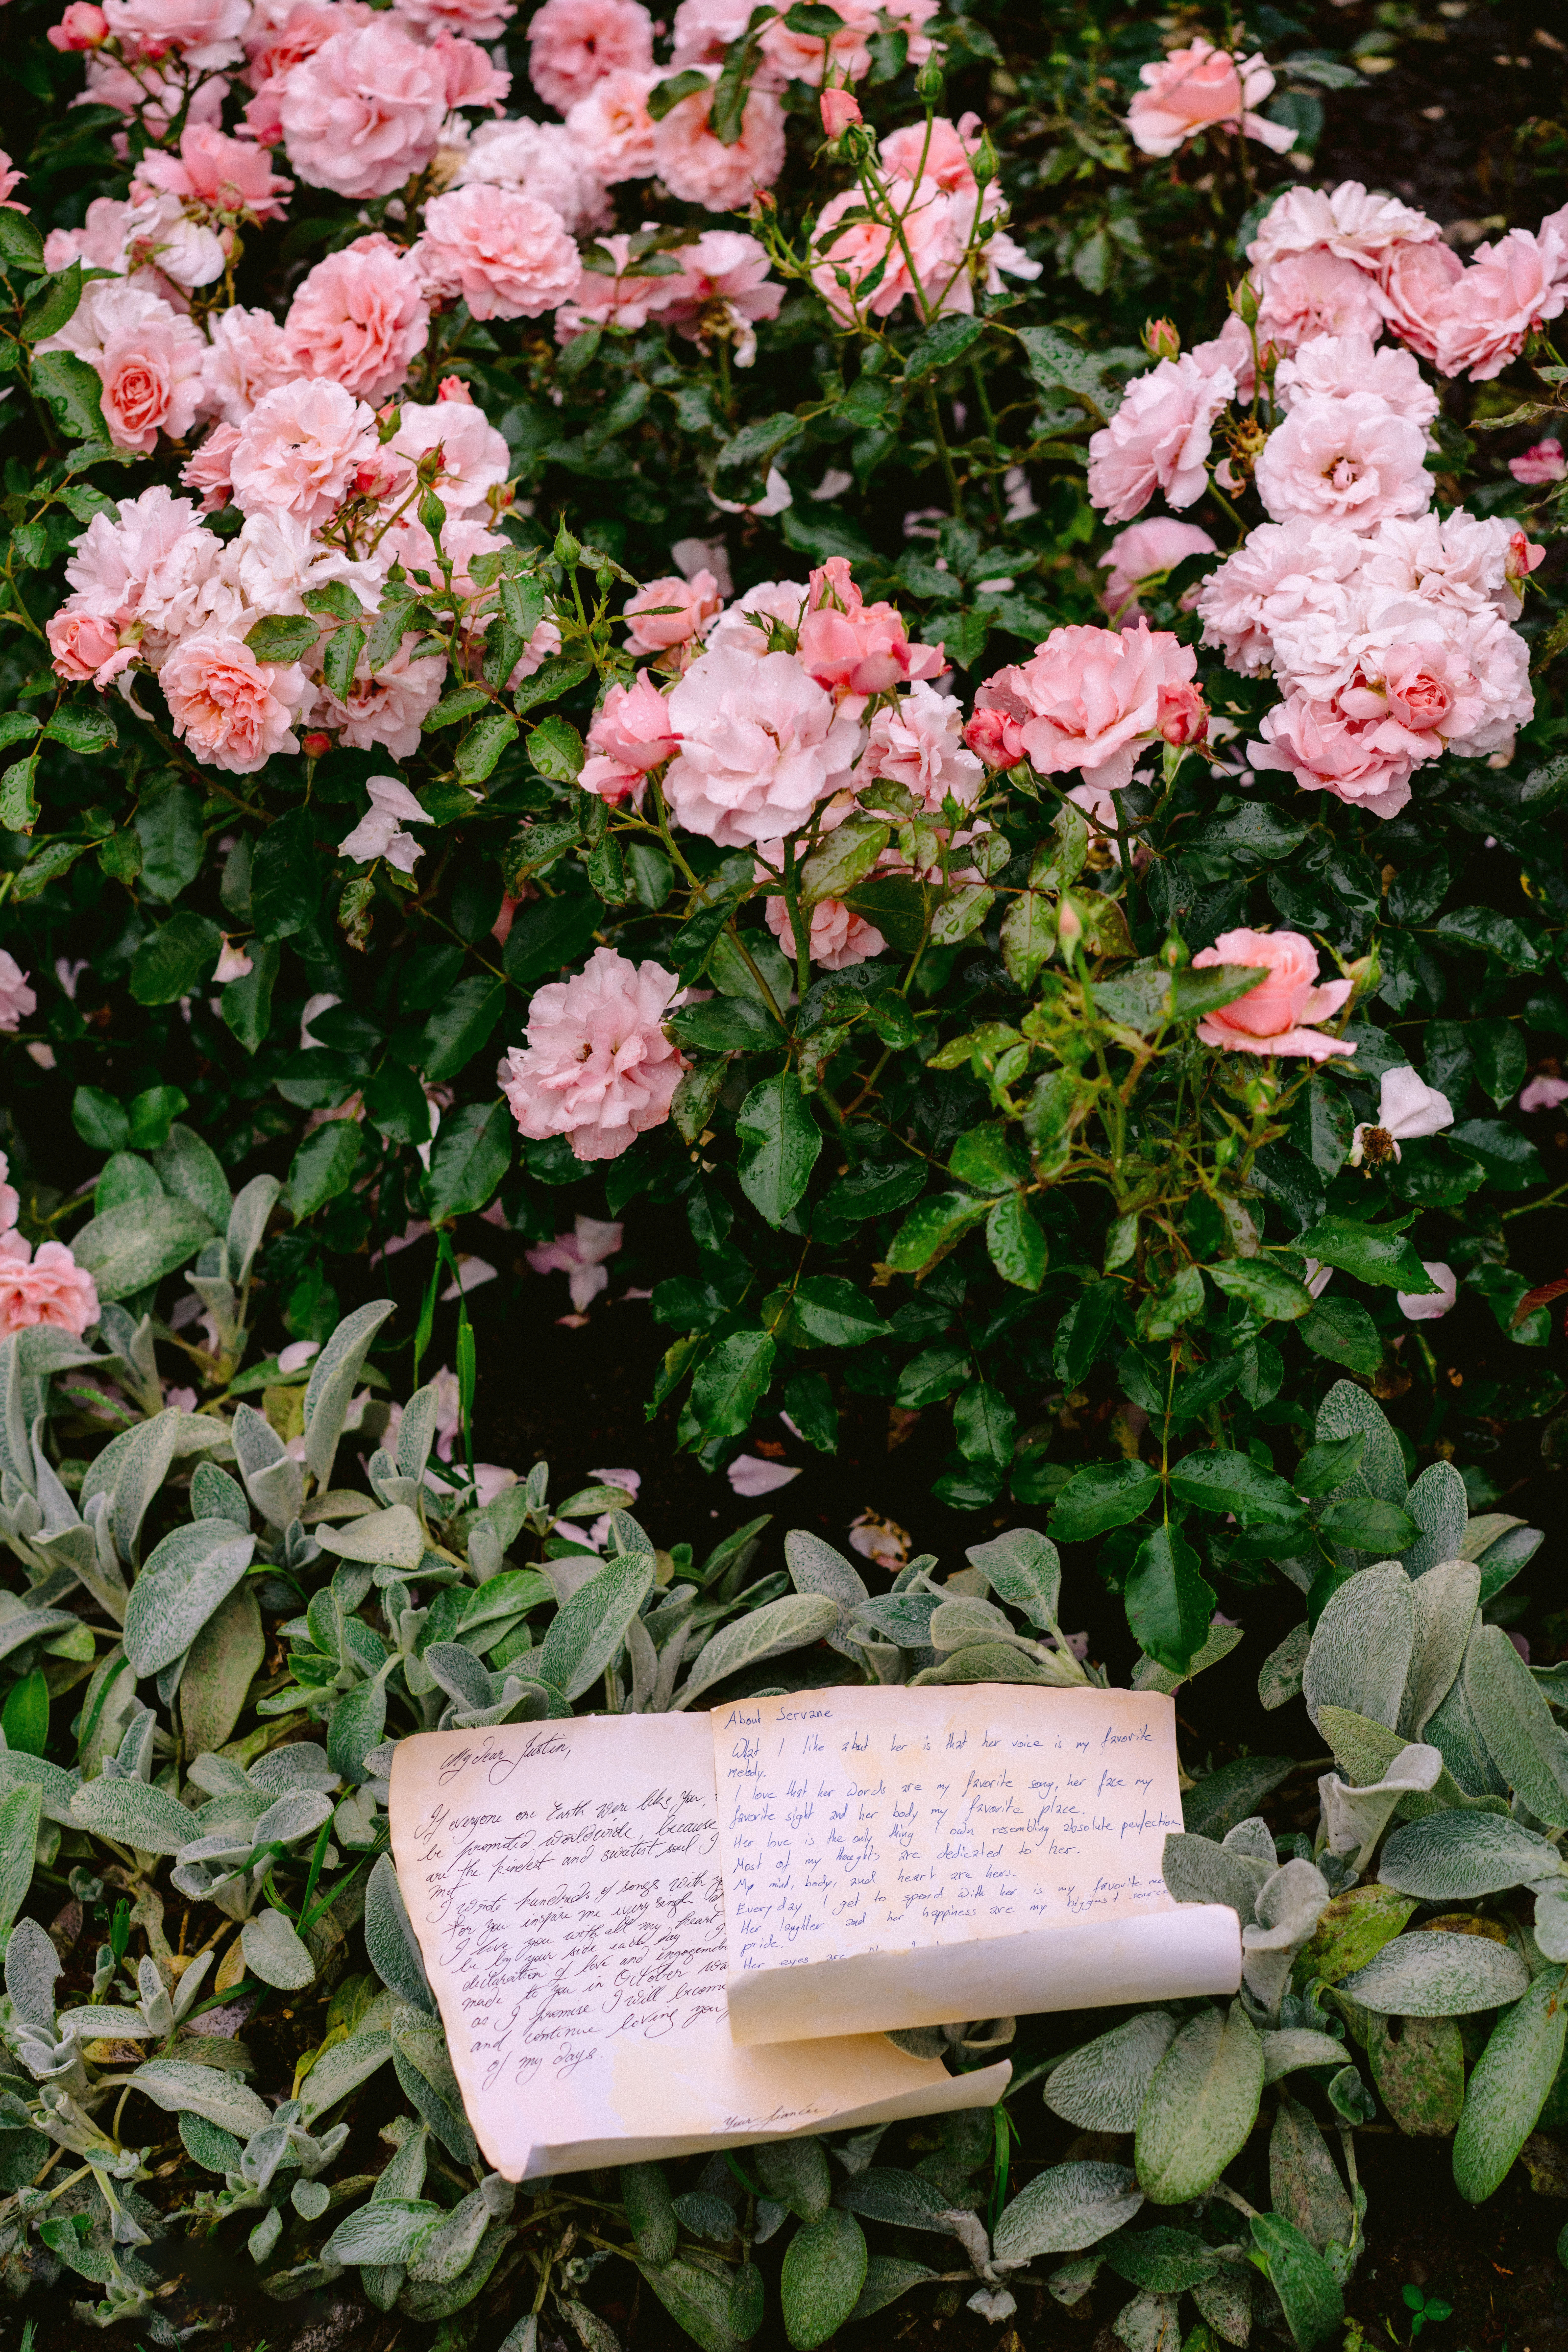 My dear Justin,
If everyone one Earth were like you,
be promoted worldwide, because
are the kindest and sweetest soul I
met
I wrote hundreds of songs with
for you inspire me every single
I love you with all my heart
be by your side each day.
declaration of love and engagement
made to you in October
as I promise I will become
and continue loving you
of my days.
Your fiancée,
About Servane
What I like about her is that her voice is my favorite
melody.
I love that her words are my favorite song, her face my
favorite sight and her body my favorite place.
Her love is the only thing I own resembling absolute perfection
Most of my thoughts are dedicated to her.
My mind, body, and heart are hers.
Every day I get to spend with her is my favorite
Her laughter and her happiness are my biggest source
pride.
Her eyes are